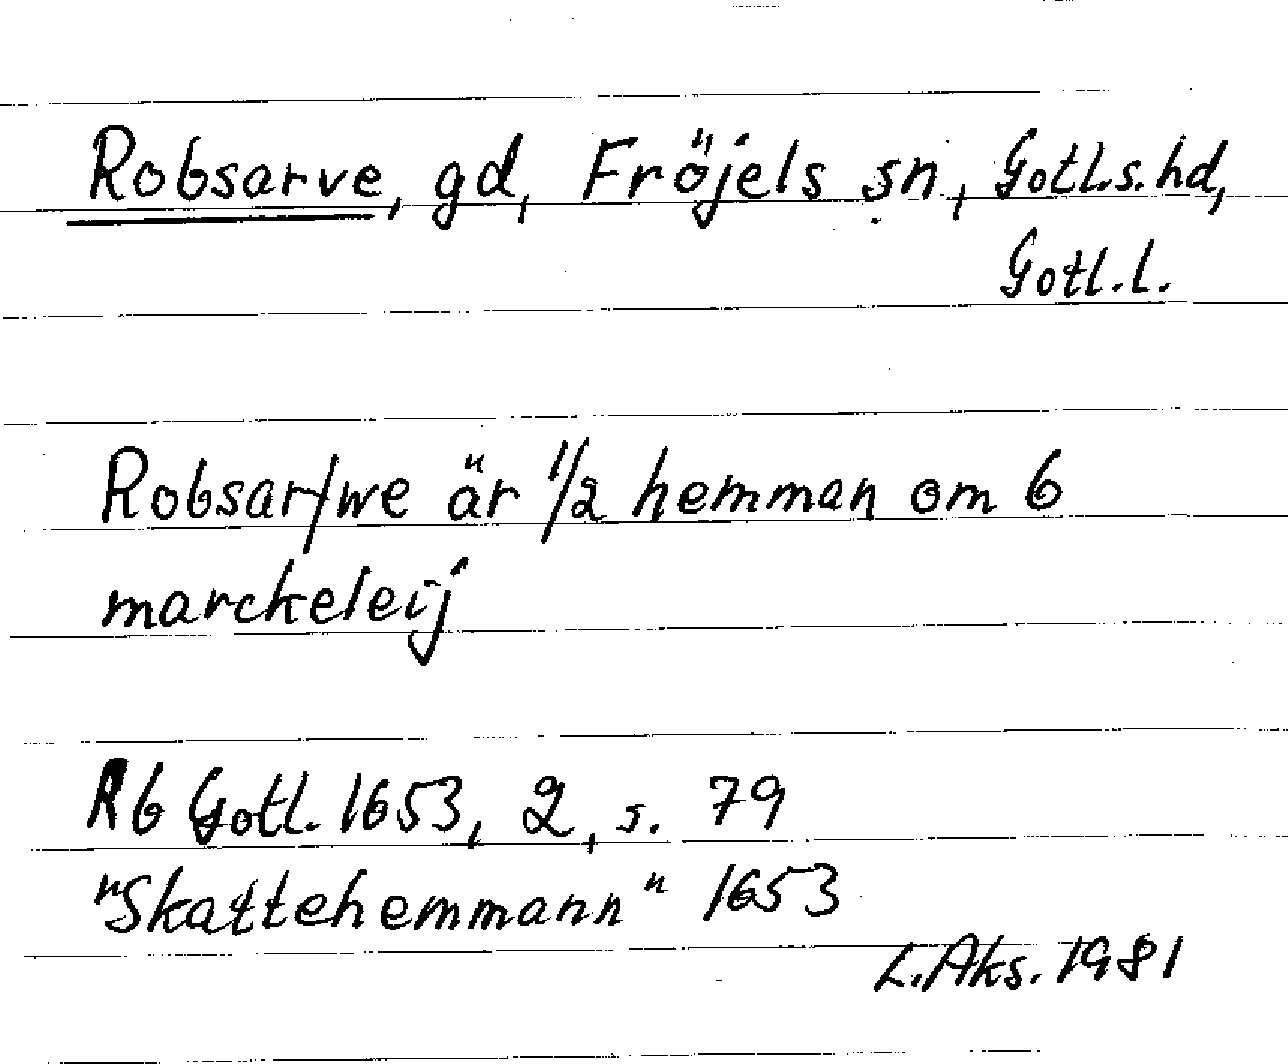 Robsarve, gd, Fröjels sn, Gotl.s.hd,
Gotl.l.
Robsar/we är 1/2 hemman om 6
marckeleij
Rb Gotl. 1653, 2, s. 79
"Skattehemmann" 1653
L.Aks. 1981